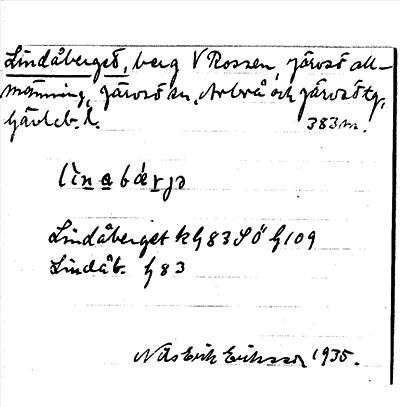 Lindåberget, berg V Rossen, Järvsö all-
männing, Järvsö sn, Arbrå och Järvsö tg,
Gävleb. l. 383 m.
Lindåberget k G 83 SÖ G 109
Lindåb. G 83
Nils Erik Eriksson 1935.